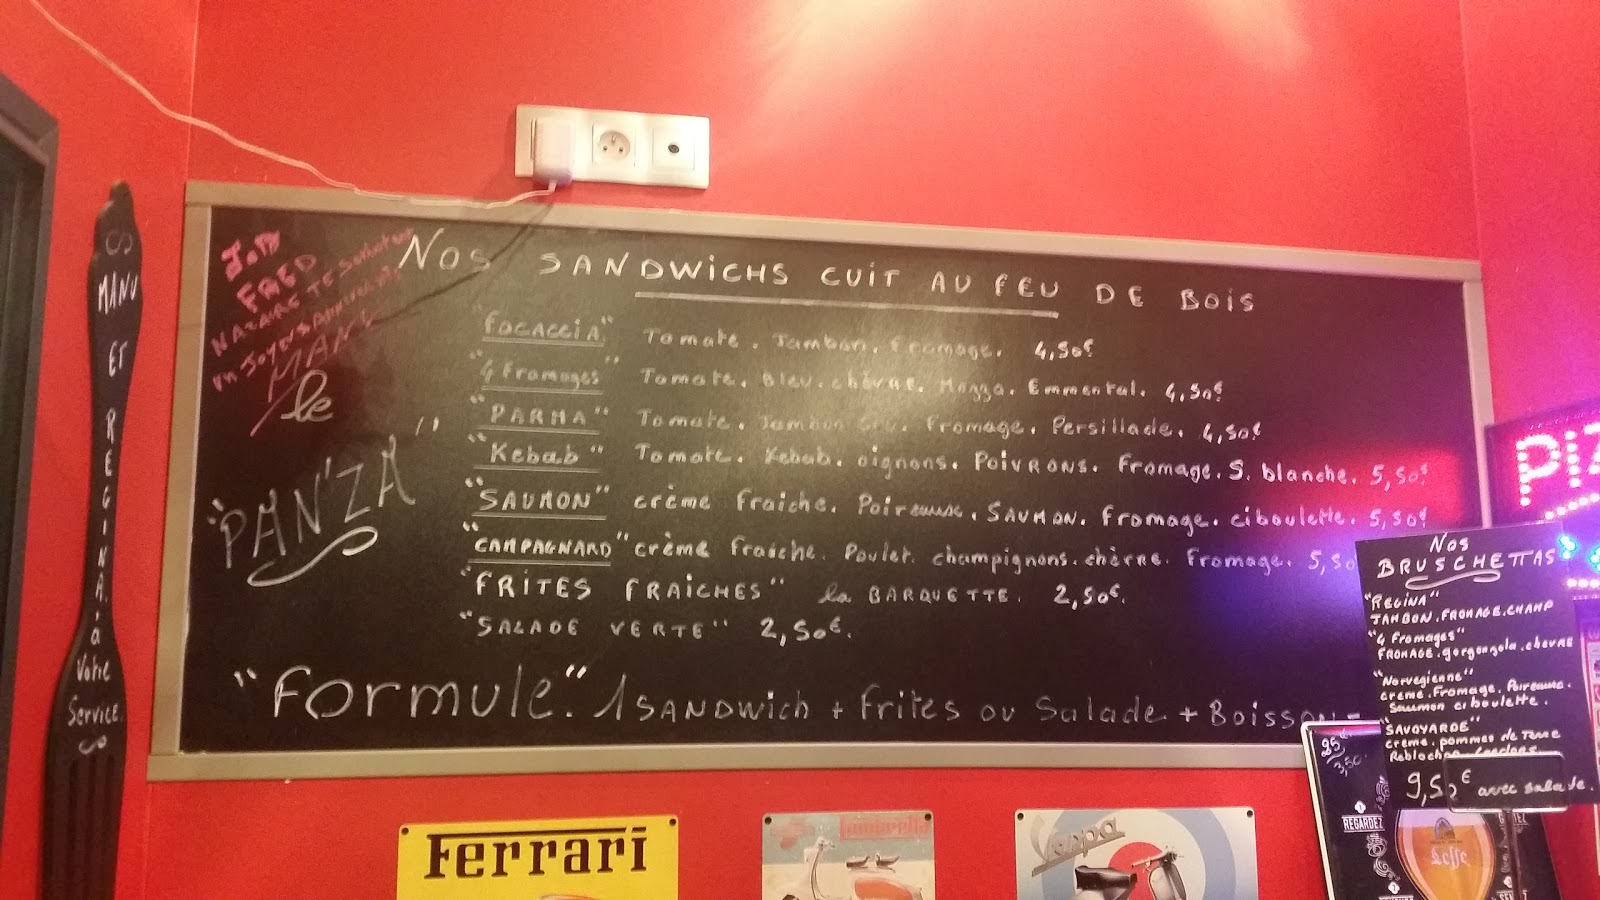 MANU ET REGINA. à votre service.
JOD
FRED
NAZAIRE TE Souhaitent
un Joyeux Anniversaire
MANU
le
"PAN'ZA"
NOS SANDWICHS CUIT AU FEU DE BOIS
"FOCACCIA" Tomate. Jambon. Fromage. 4,50€
"4 Fromages" Tomate. Bleu. chèvre. Mozza. Emmental. 4,50€
"PARMA" Tomate. Jambon Cru. Fromage. Persillade. 4,50€
"Kebab" Tomate. Kebab. oignons. POIVRONS. Fromage. S. blanche. 5,50€
"SAUMON" crème Fraiche. Poireaux. SAUMON. Fromage. ciboulette. 5,50€
"CAMPAGNARD" crème Fraiche. Poulet. champignons. chèvre. Fromage. 5,50
"FRITES FRAICHES" la BARQUETTE. 2,50€.
"SALADE VERTE" 2,50€.
"Formule". 1 SANDWich + Frites ou Salade + BOISSON
PIZ
Nos
BRUSCHETTAS
"REGINA"
JAMBON. FROMAGE. CHAMP
"4 Fromages"
FROMAGE. gorgonzola. chevre
"Norvegienne"
creme. Fromage. Poireaux.
Saumon ciboulette.
"SAVOYARDE"
creme. pommes de Terre
Reblochon Lardons
9,50€ avec salade.
25
3,50.
REGARDEZ
Leffe
Ferrari
Lambretta
Vespa